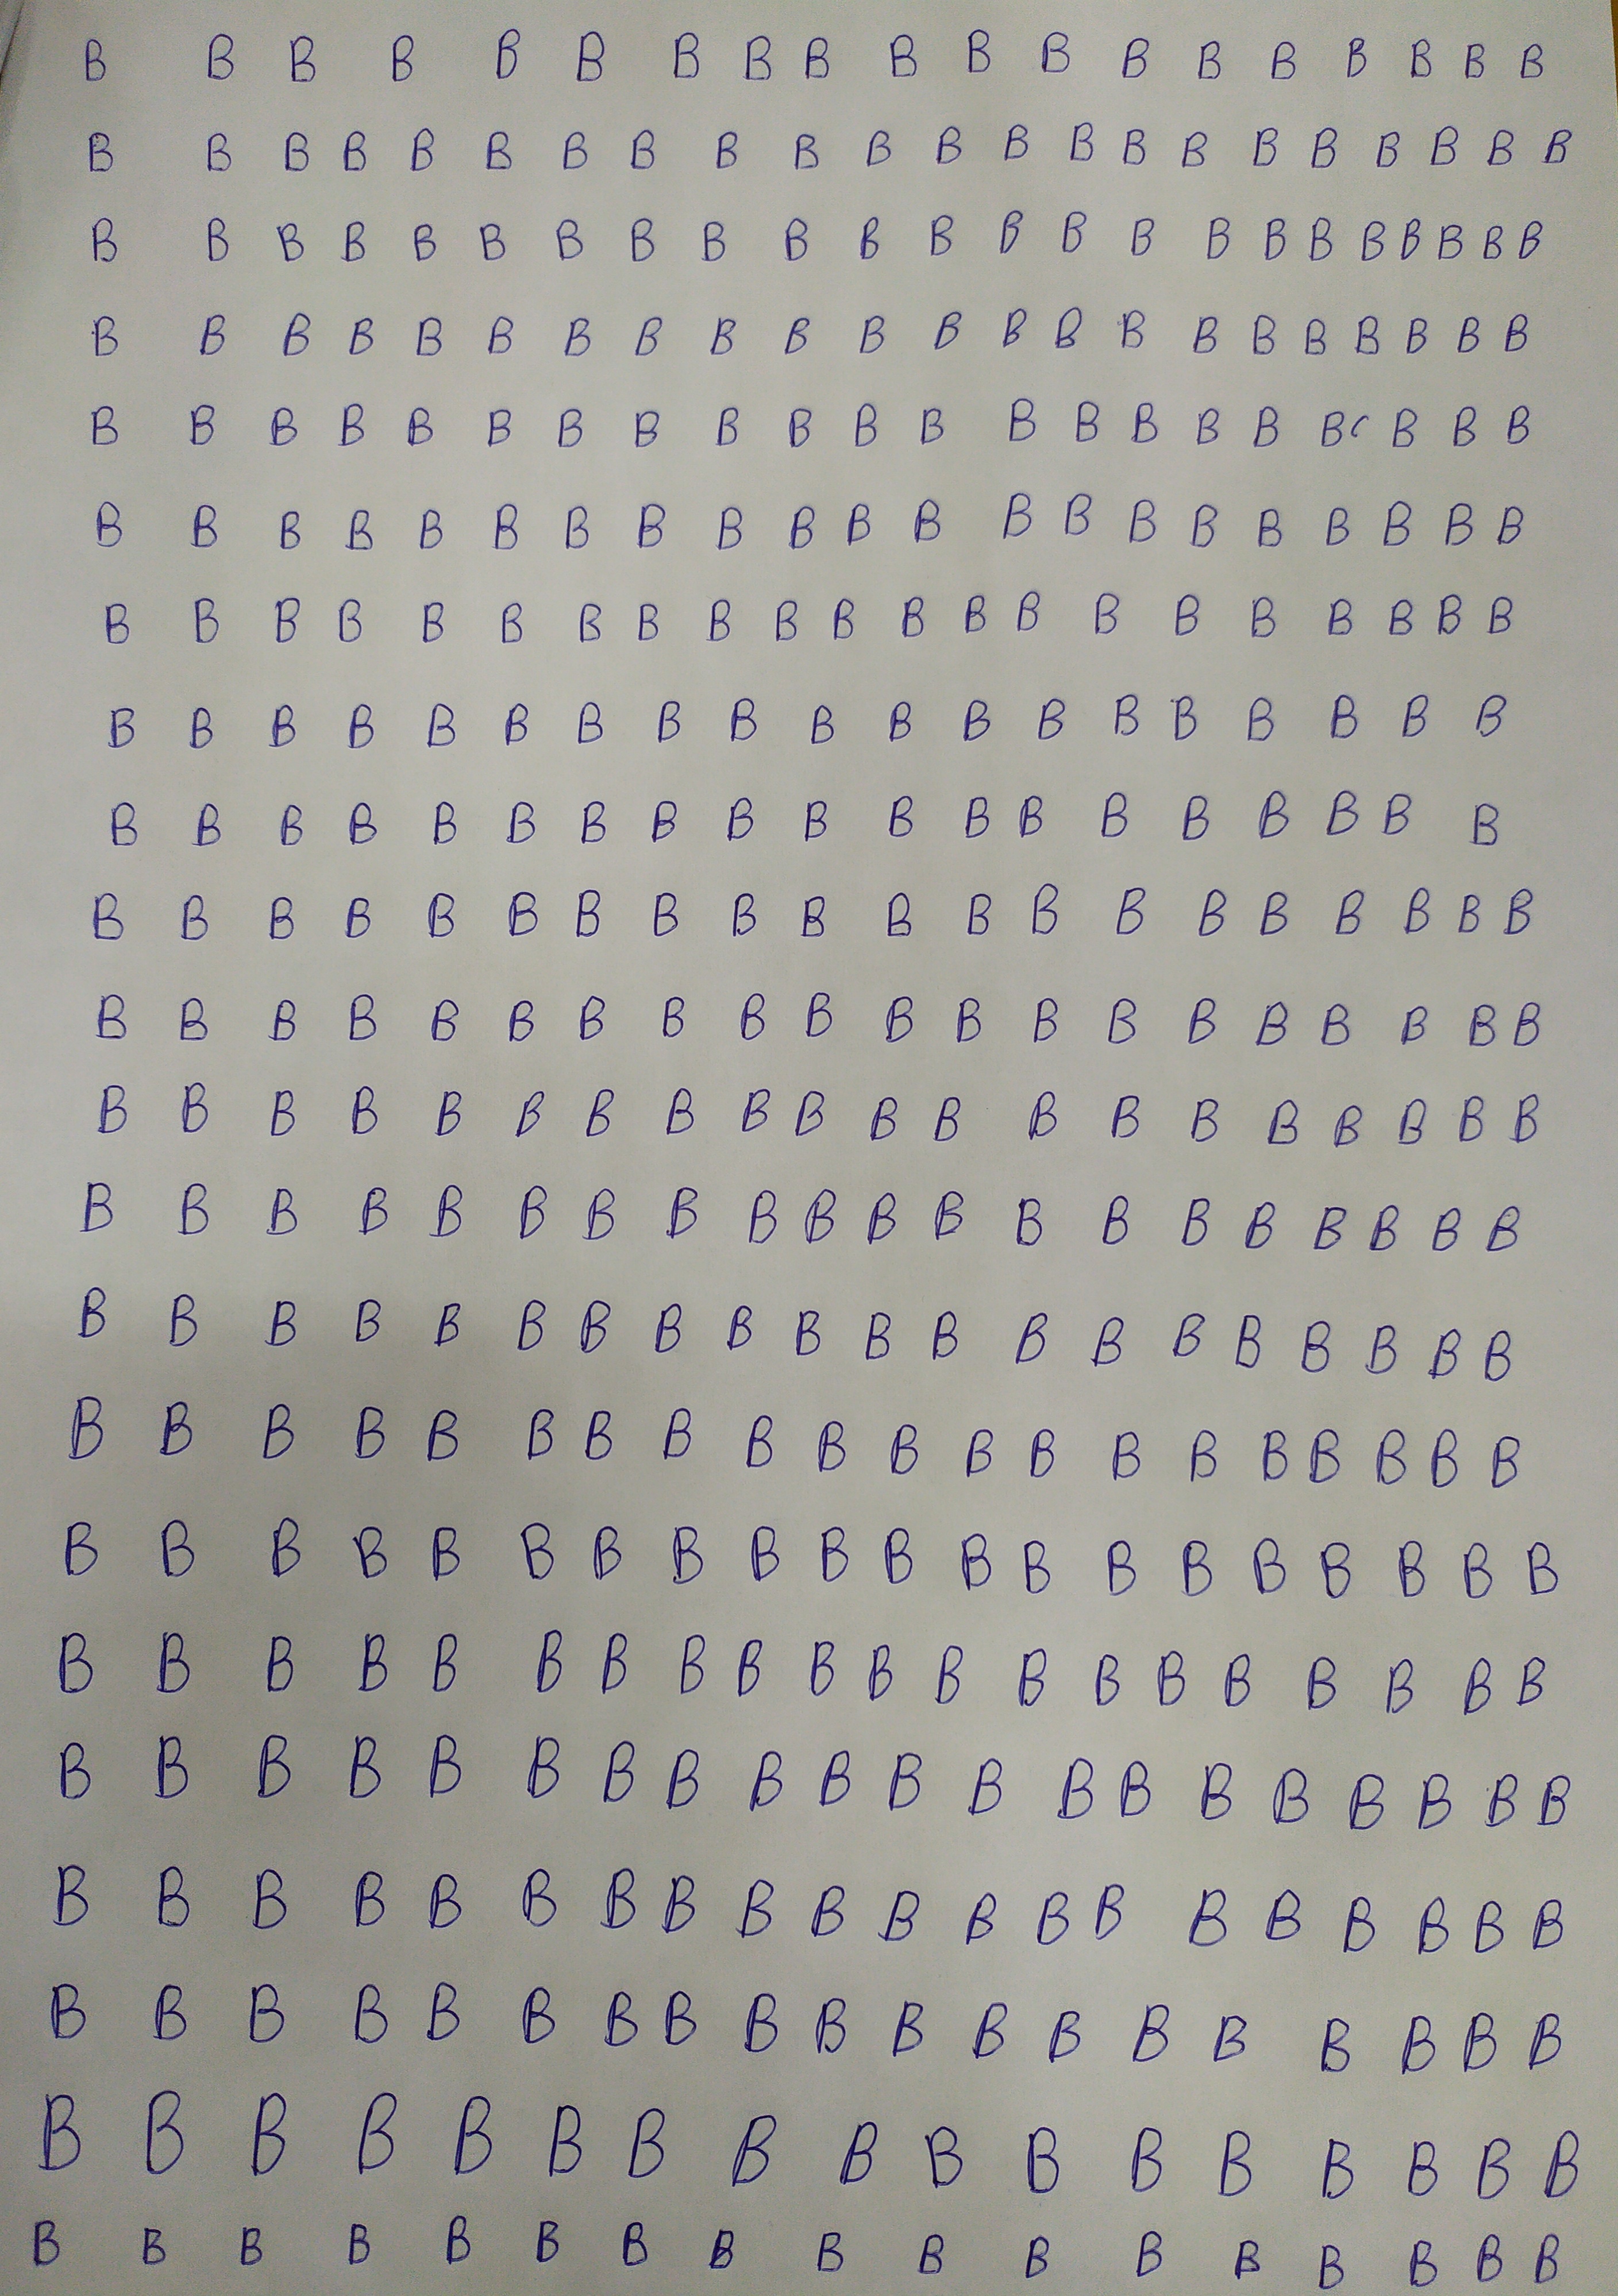 B B B B B B B B B B B B B B B B B B B
B B B B B B B B B B B B B B B B B B B B B B
B B B B B B B B B B B B B B B B B B B B B B B
B B B B B B B B B B B B B B B B B B B B B B
B B B B B B B B B B B B B B B B B B c B B B
B B B B B B B B B B B B B B B B B B B B B
B B B B B B B B B B B B B B B B B B B B B
B B B B B B B B B B B B B B B B B B B
B B B B B B B B B B B B B B B B B B B
B B B B B B B B B B B B B B B B B B B B
B B B B B B B B B B B B B B B B B B B B
B B B B B B B B B B B B B B B B B B B B
B B B B B B B B B B B B B B B B B B B B
B B B B B B B B B B B B B B B B B B B B
B B B B B B B B B B B B B B B B B B B B
B B B B B B B B B B B B B B B B B B B B
B B B B B B B B B B B B B B B B B B B B
B B B B B B B B B B B B B B B B B B B B
B B B B B B B B B B B B B B B B B B B B
B B B B B B B B B B B B B B B B B B B
B B B B B B B B B B B B B B B B B
B B B B B B B B B B B B B B B B B